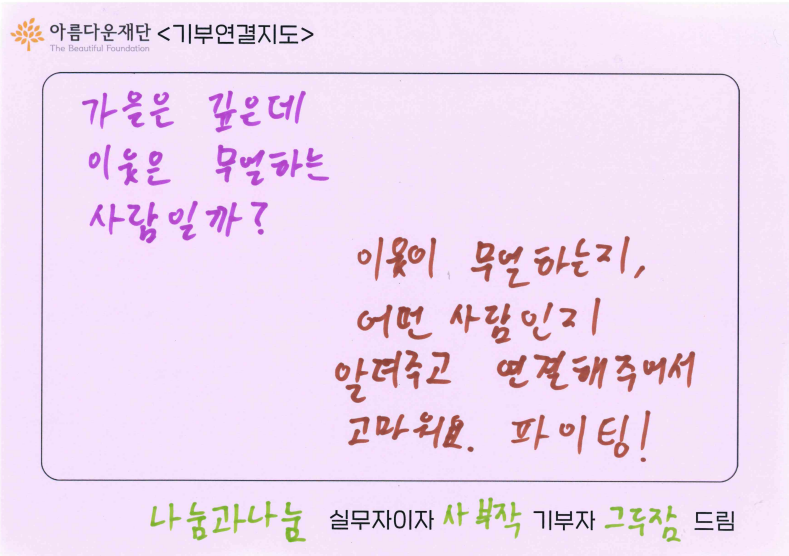 아름다운재단 <기부연결지도>
The Beautiful Foundation
가을은 깊은데
이웃은 무얼하는
사람일까?
이웃이 무얼하는지,
어떤 사람인지
알려주고 연결해주어서
고마워요. 파이팅!
나눔과나눔 실무자이자 사부작 기부자 그루잠 드림